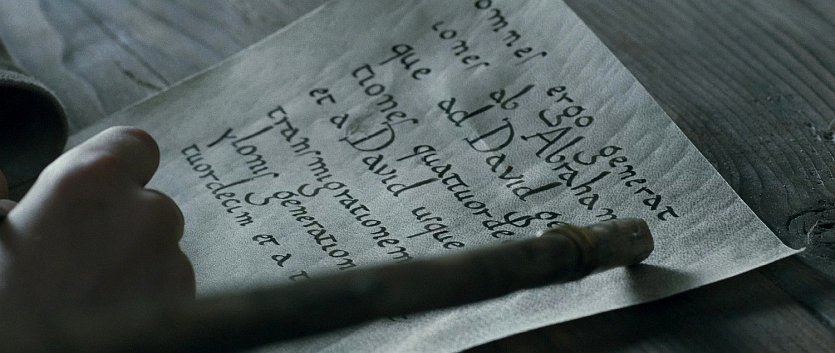 omneſ ergo generat
ioneſ ab Abraham
que ad David ge
tioneſ quattuorde
et a David uſque
tranſmigrationem
yloniſ generation
tuordecim et a t